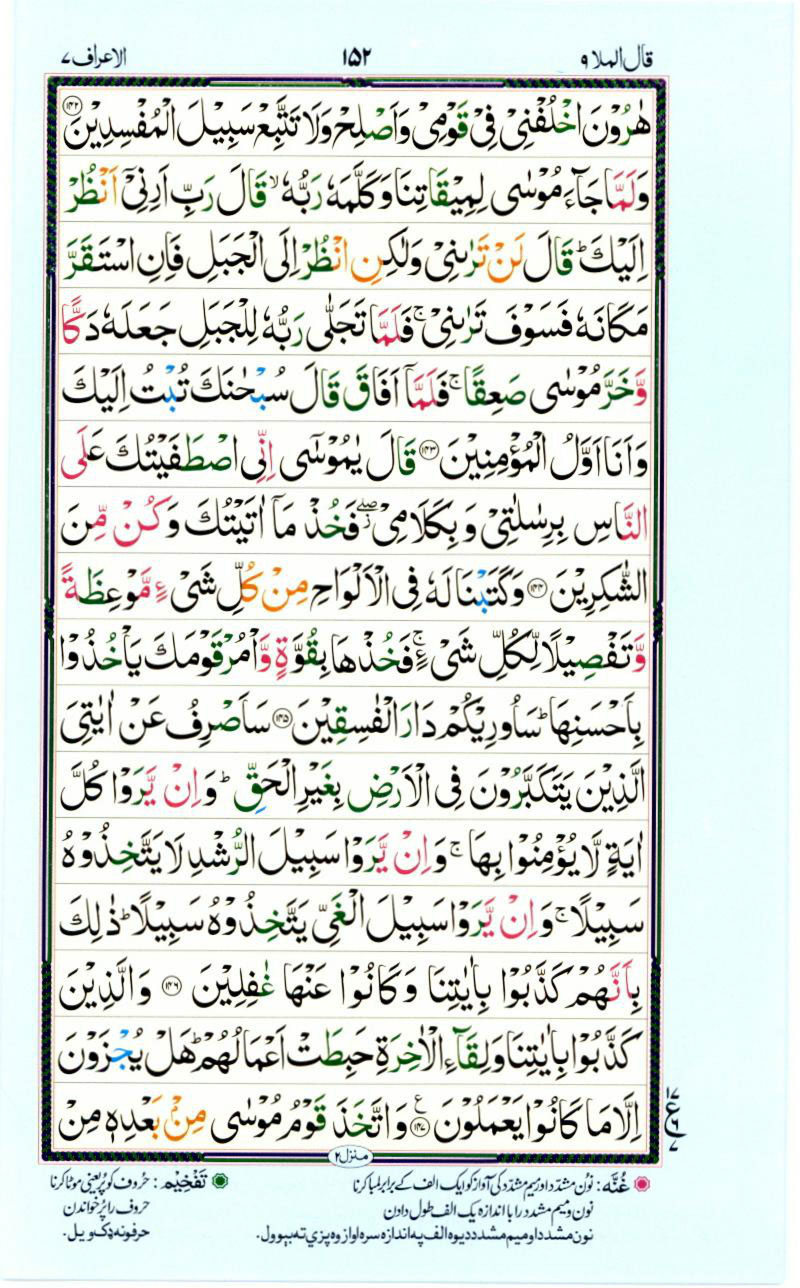 قال الملا ٩ ١٥٢ الاعراف ٧
هٰرُوْنَ اخْلُفْنِیْ فِیْ قَوْمِیْ وَاَصْلِحْ وَلَا تَتَّبِعْ سَبِیْلَ الْمُفْسِدِیْنَ ﴿۱۴۲﴾
وَلَمَّا جَآءَ مُوْسٰی لِمِیْقَاتِنَا وَكَلَّمَهٗ رَبُّهٗ ۙ قَالَ رَبِّ اَرِنِیْۤ اَنْظُرْ
اِلَیْكَ ؕ قَالَ لَنْ تَرٰىنِیْ وَلٰكِنِ انْظُرْ اِلَی الْجَبَلِ فَاِنِ اسْتَقَرَّ
مَكَانَهٗ فَسَوْفَ تَرٰىنِیْ ۚ فَلَمَّا تَجَلّٰی رَبُّهٗ لِلْجَبَلِ جَعَلَهٗ دَكًّا
وَّخَرَّ مُوْسٰی صَعِقًا ۚ فَلَمَّاۤ اَفَاقَ قَالَ سُبْحٰنَكَ تُبْتُ اِلَیْكَ
وَاَنَا اَوَّلُ الْمُؤْمِنِیْنَ ﴿۱۴۳﴾ قَالَ یٰمُوْسٰۤی اِنِّی اصْطَفَیْتُكَ عَلَی
النَّاسِ بِرِسٰلٰتِیْ وَ بِكَلَامِیْ ۖز فَخُذْ مَاۤ اٰتَیْتُكَ وَكُنْ مِّنَ
الشّٰكِرِیْنَ ﴿۱۴۴﴾ وَكَتَبْنَا لَهٗ فِی الْاَلْوَاحِ مِنْ كُلِّ شَیْءٍ مَّوْعِظَةً
وَّتَفْصِیْلًا لِّكُلِّ شَیْءٍ ۚ فَخُذْهَا بِقُوَّةٍ وَّاْمُرْ قَوْمَكَ یَاْخُذُوْا
بِاَحْسَنِهَا ؕ سَاُورِیْكُمْ دَارَ الْفٰسِقِیْنَ ﴿۱۴۵﴾ سَاَصْرِفُ عَنْ اٰیٰتِیَ
الَّذِیْنَ یَتَكَبَّرُوْنَ فِی الْاَرْضِ بِغَیْرِ الْحَقِّ ؕ وَاِنْ یَّرَوْا كُلَّ
اٰیَةٍ لَّا یُؤْمِنُوْا بِهَا ۚ وَاِنْ یَّرَوْا سَبِیْلَ الرُّشْدِ لَا یَتَّخِذُوْهُ
سَبِیْلًا ۚ وَاِنْ یَّرَوْا سَبِیْلَ الْغَیِّ یَتَّخِذُوْهُ سَبِیْلًا ؕ ذٰلِكَ
بِاَنَّهُمْ كَذَّبُوْا بِاٰیٰتِنَا وَكَانُوْا عَنْهَا غٰفِلِیْنَ ﴿۱۴۶﴾ وَالَّذِیْنَ
كَذَّبُوْا بِاٰیٰتِنَا وَلِقَآءِ الْاٰخِرَةِ حَبِطَتْ اَعْمَالُهُمْ ؕ هَلْ یُجْزَوْنَ
اِلَّا مَا كَانُوْا یَعْمَلُوْنَ ﴿۱۴۷﴾ ع وَاتَّخَذَ قَوْمُ مُوْسٰی مِنْۢ بَعْدِهٖ مِنْ
١٧
ع ٦
٧
منزل ٢
غُنَّه: نون مشدّد اور میم مشدّد کی آواز کو ایک الف کے برابر لمبا کرنا
نون و میم مشدد را با اندازہ یک الف طول دادن
نون مشدد او میم مشدد دیوه الف په اندازه سره اواز وه پزې ته بیوول.
تَفْخِیْم: حروف کو پُر یعنی موٹا کرنا
حروف را پُر خواندن
حرفونه ډک ویل.